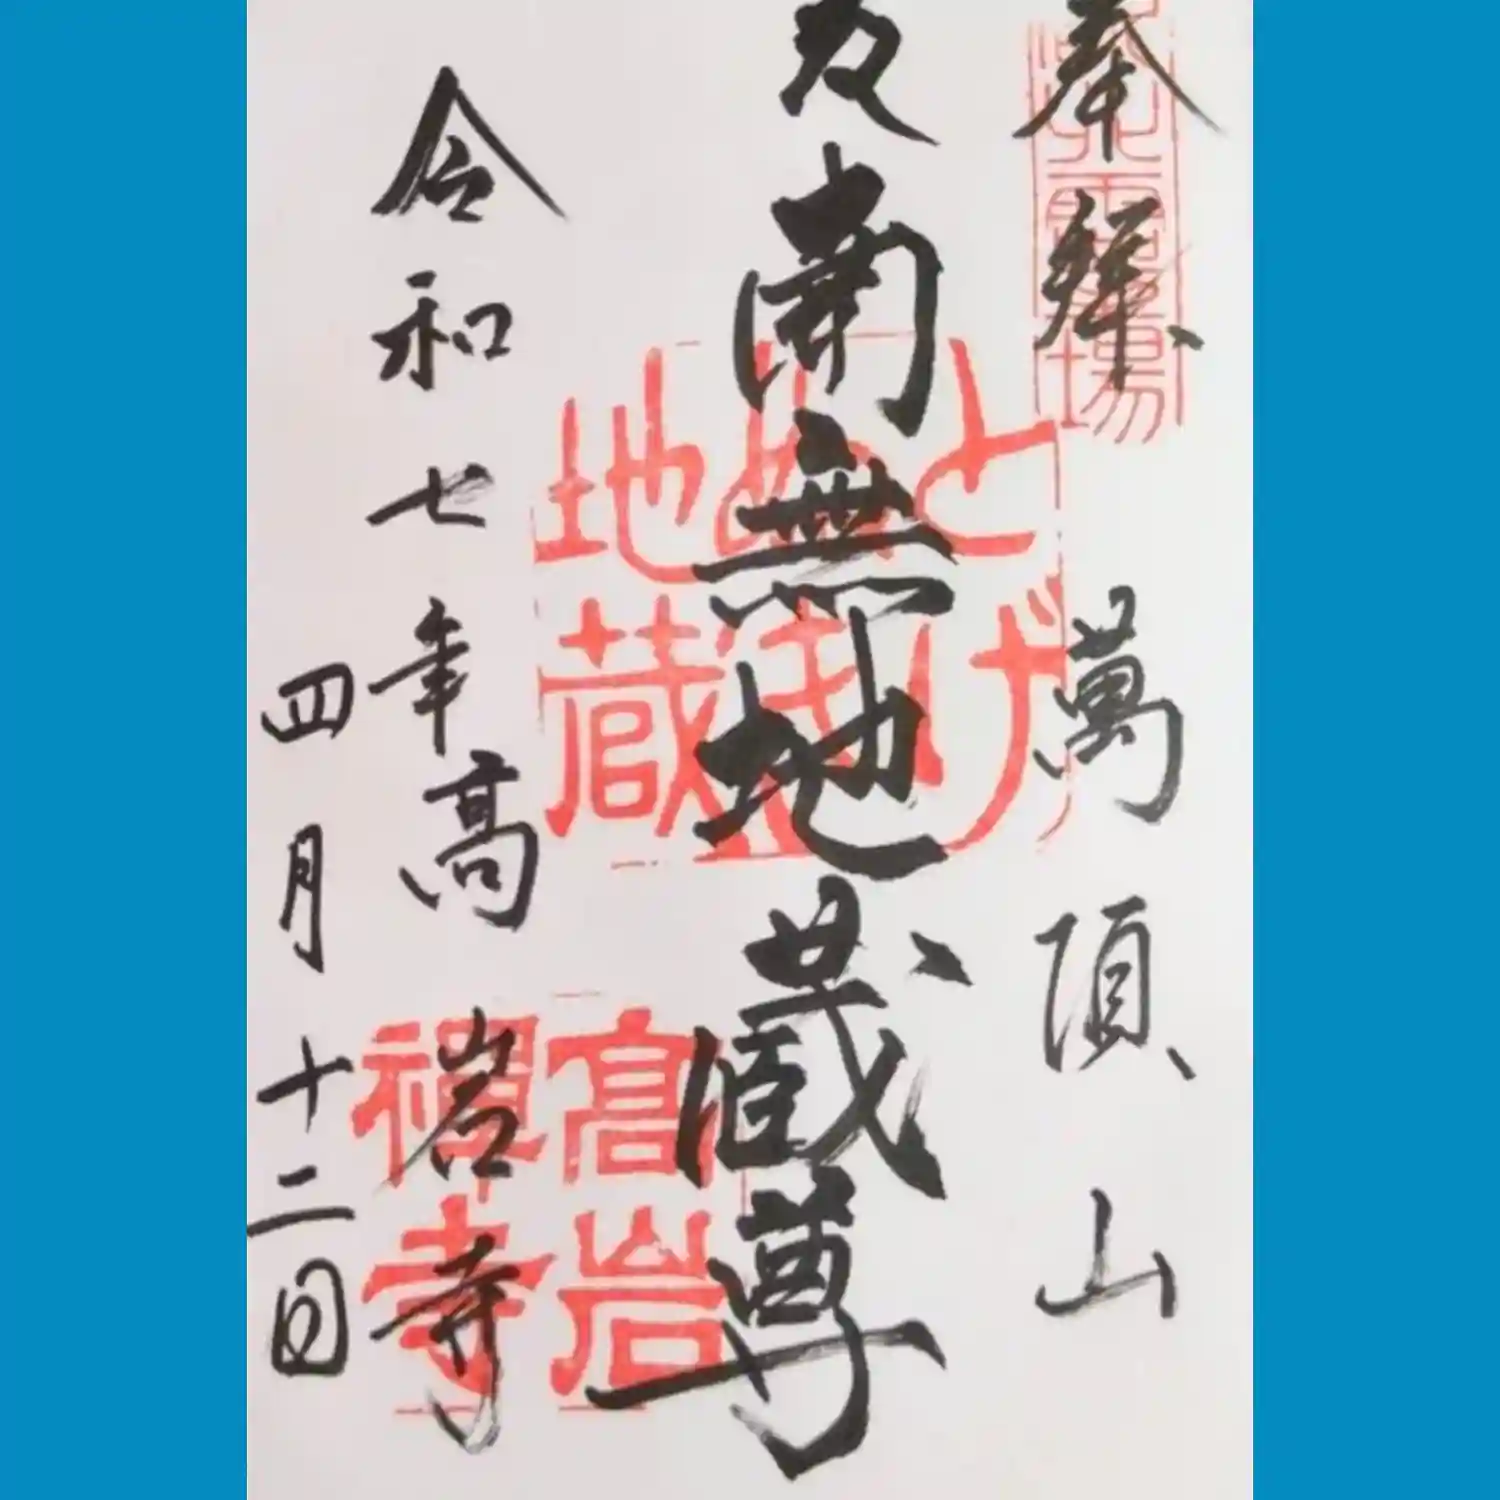 奉拝
萬頂山
南無地蔵尊
令和七年
高岩寺
四月十二日
霊場
とげぬき地蔵
高岩禅寺